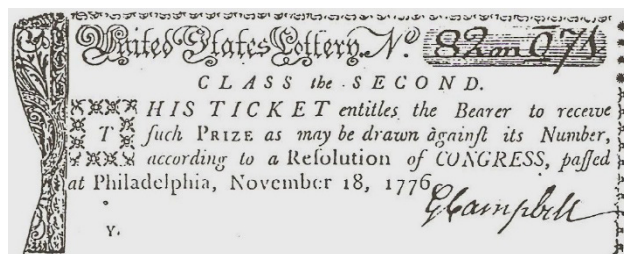 United States Lottery. Nº 82 m 074
CLASS the SECOND.
THIS TICKET entitles the Bearer to receive
ſuch PRIZE as may be drawn againſt its Number,
according to a Reſolution of CONGRESS, paſſed
at Philadelphia, November 18, 1776
G Campbell
Y.